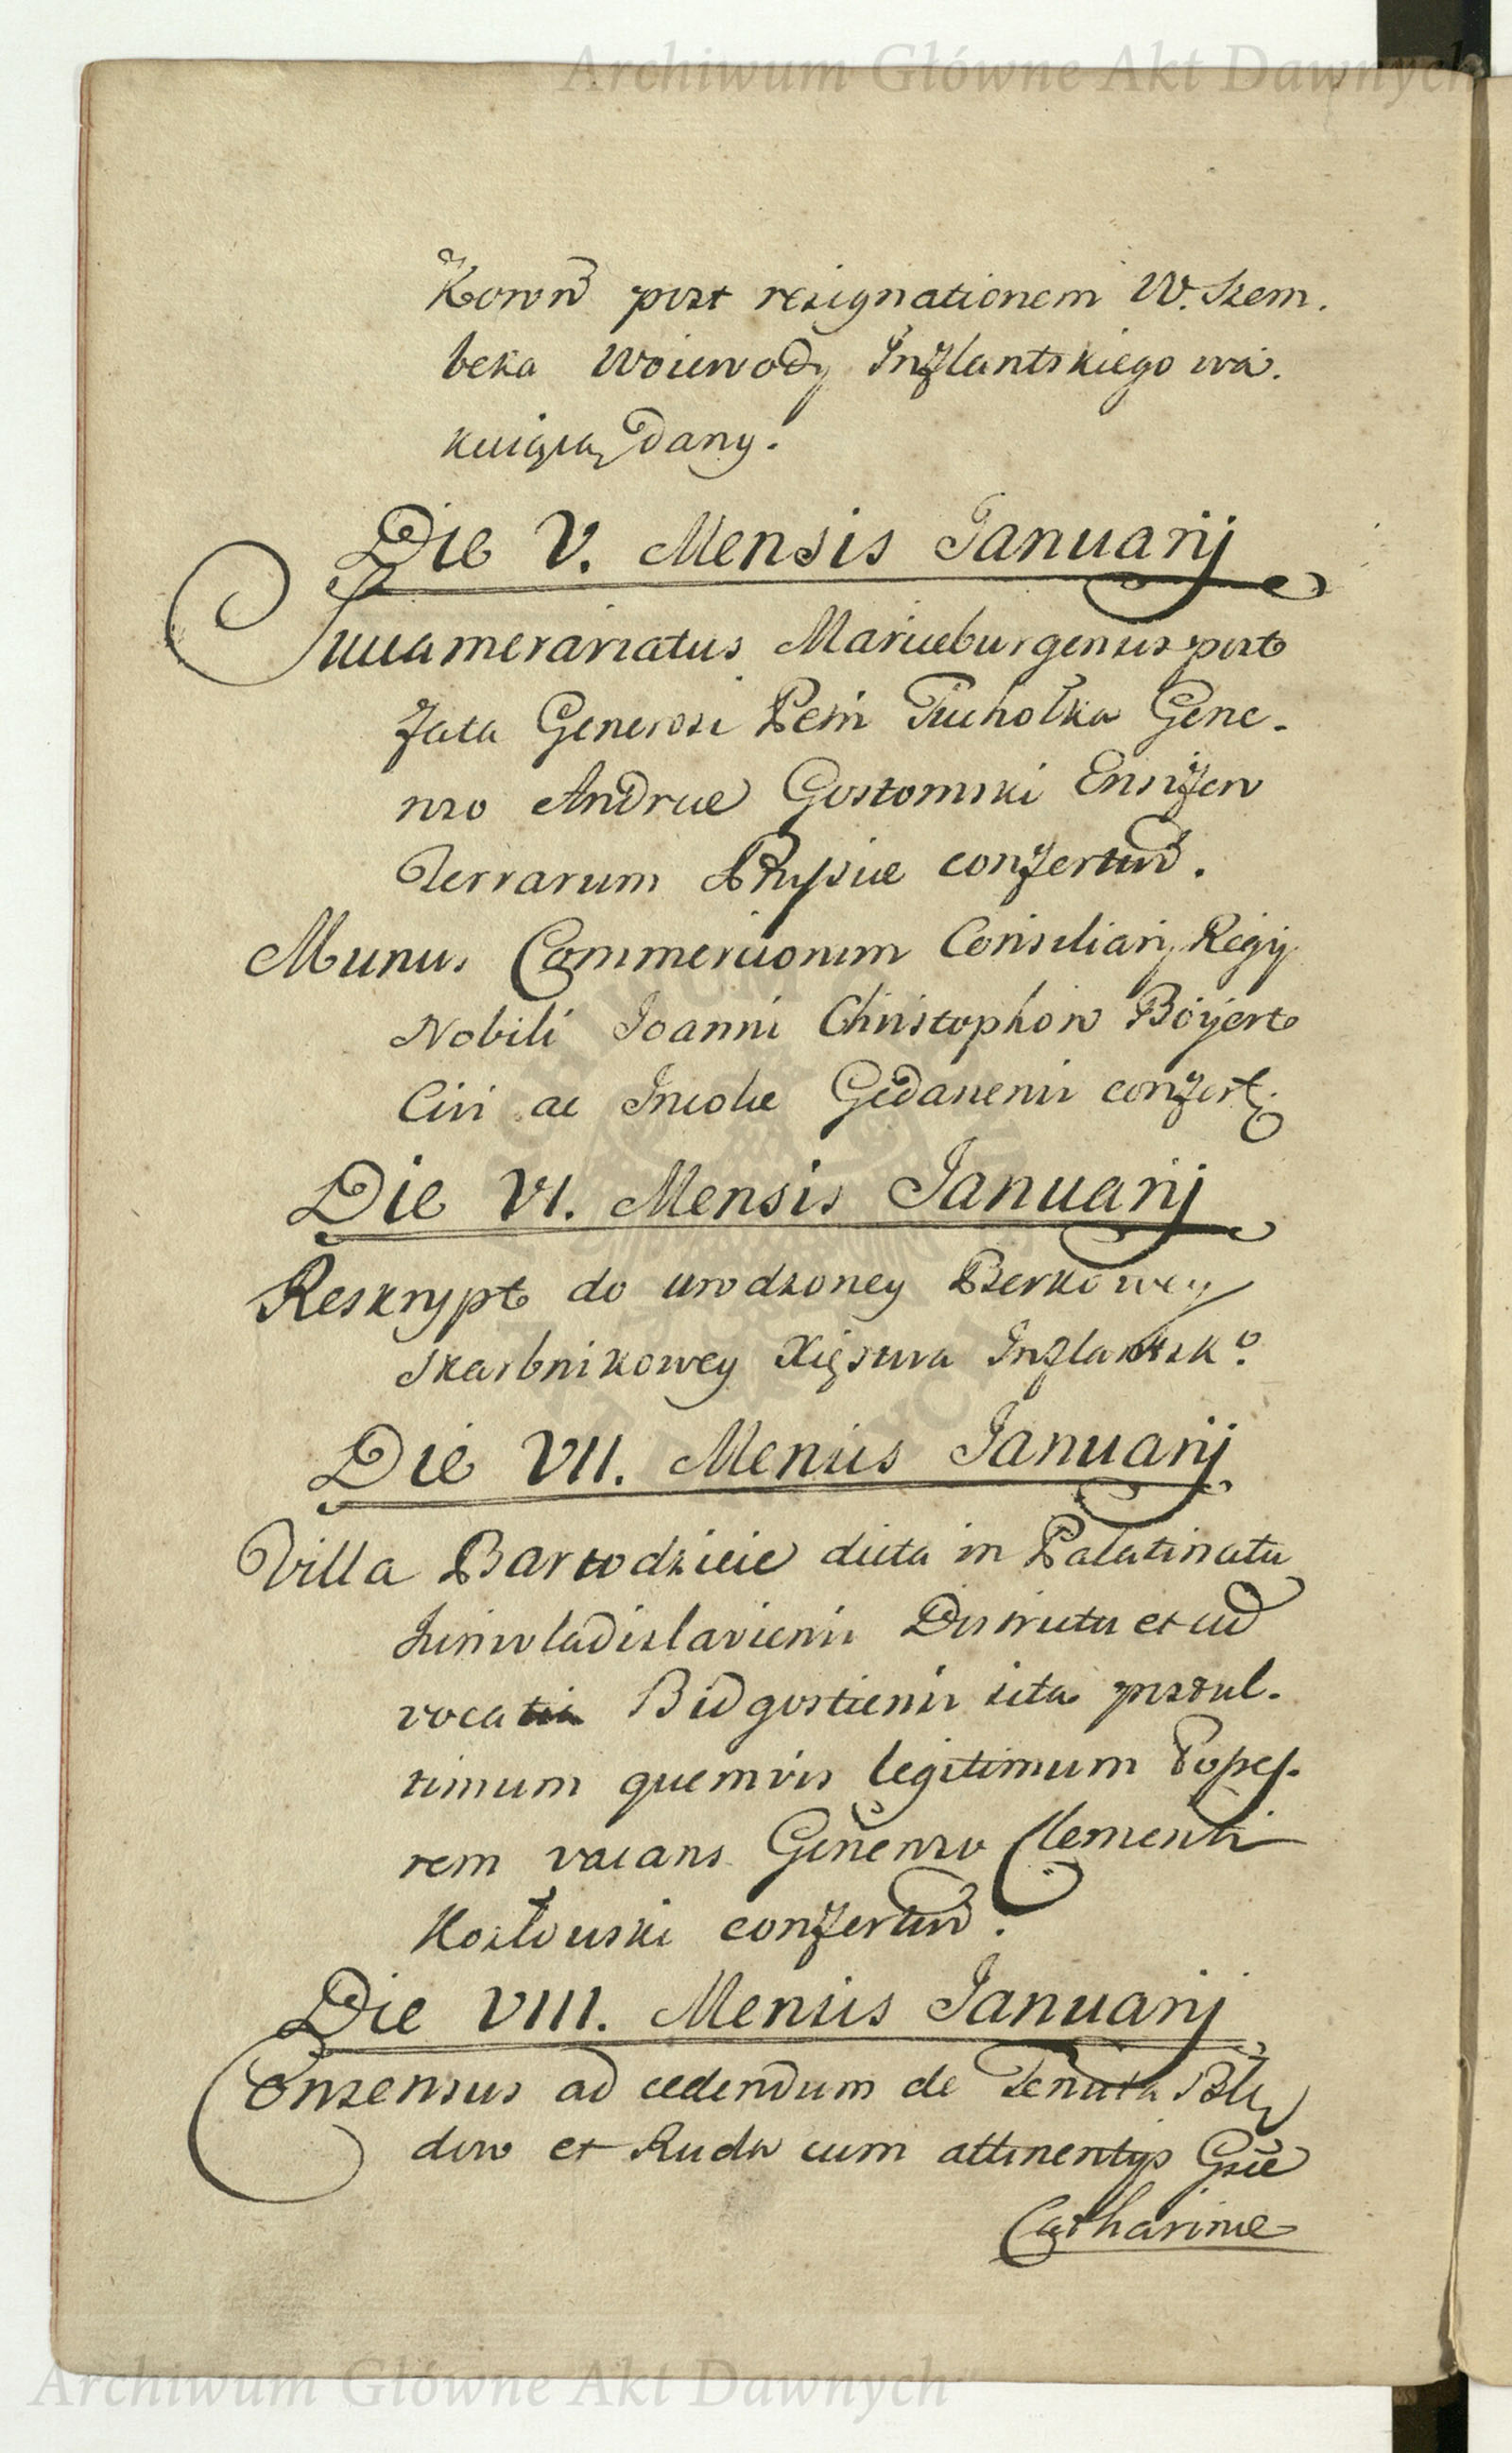 Archiwum Główne Akt Dawnych
Koronꝰ post resignationem W. Szem.
beka Woiewody Inflantskiego wa.
kuiącą dany.
Die V. Mensis Januarij
Succamerariatus Mariæburgensis post
fata Generosi Petri Tuchołka Gene.
roso Andreæ Gostomski Ensifero
Terrarum Prussiæ confertur.
Munus Commerciorum Consiliarij Regij
Nobili Joanni Christophoro Böyert
Civi ac Incolæ Gedanensi confert.
Die VI. Mensis Januarij
Reskrypt do urodzoney Bzerkowey
Skarbnikowey Xięstwa Inflantsk°.
Die VII. Mensis Januarij
Villa Bartodzieie dicta in Palatinatu
Juniwladislaviensi Districtu et ad
vocatia Bidgostiensi sita post ul.
timum quemvis legitimum Posses.
rem vacans Generoso Clementi
Kozłowski confertur.
Die VIII. Mensis Januarij
Consensus ad cedendum de Tenuta Blę
dow et Ruda cum attinentijs Gsæ
Catharinæ
Archiwum Główne Akt Dawnych